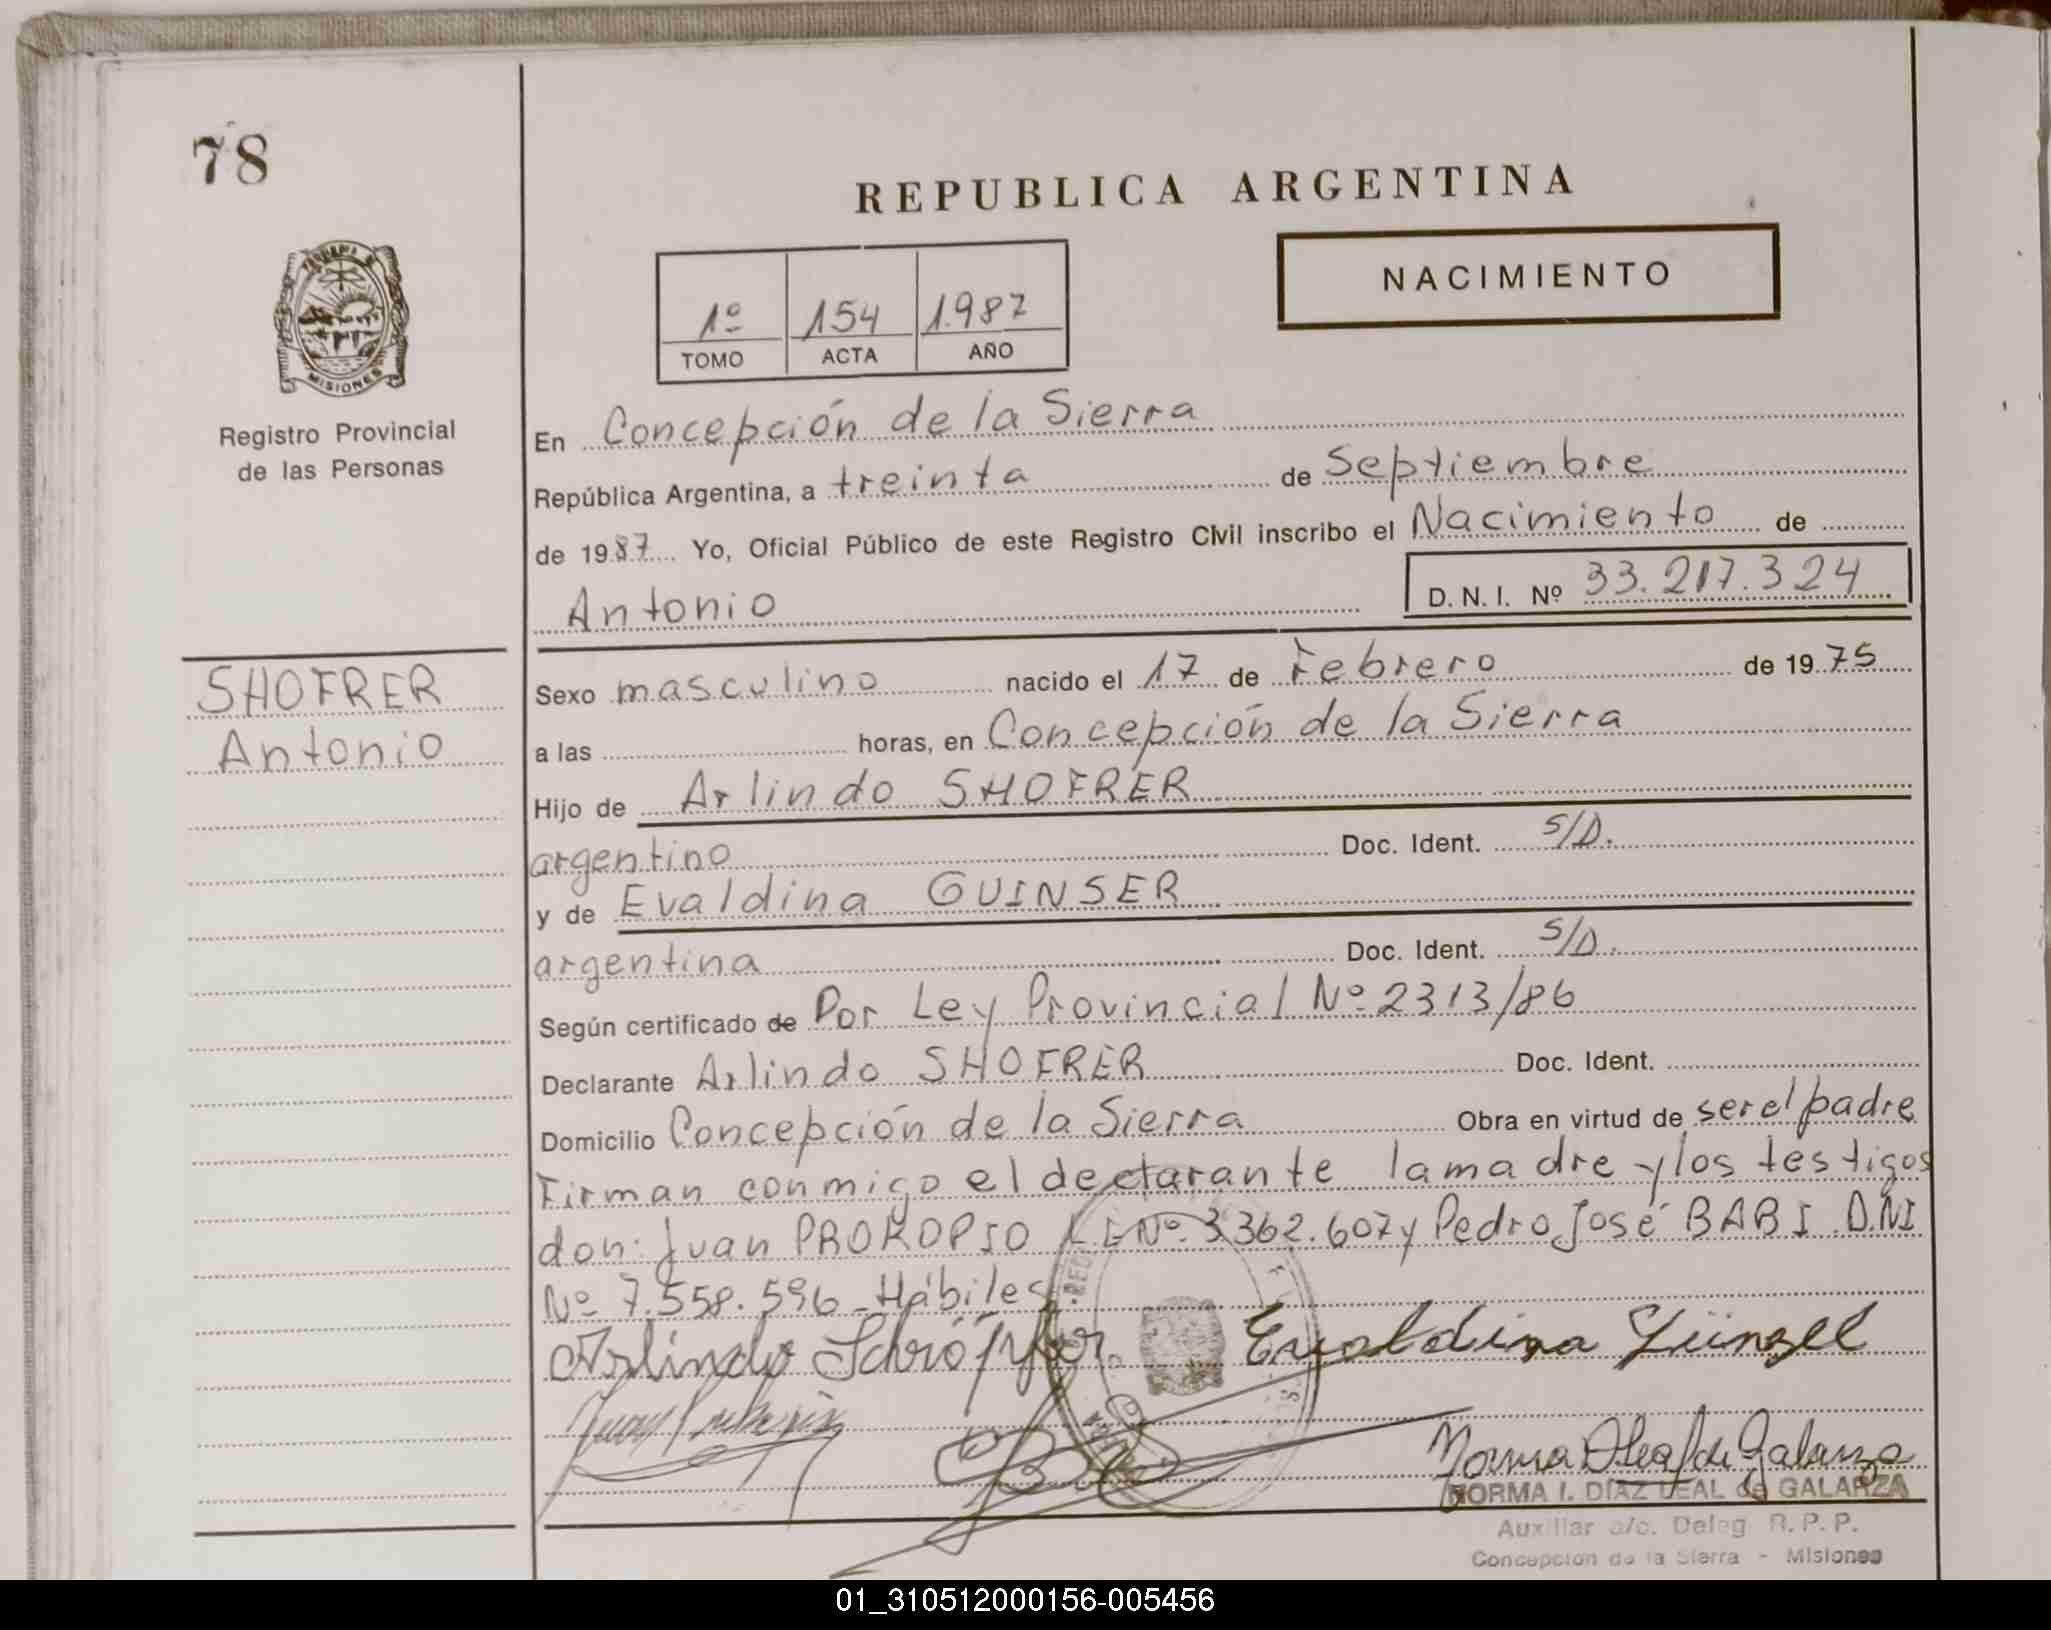 78
REPUBLICA ARGENTINA
NACIMIENTO
1º 154 1.987
TOMO ACTA AÑO
MISIONES
Registro Provincial
de las Personas
SHOFRER
Antonio
En Concepción de la Sierra
República Argentina, a treinta de Septiembre
de 1987 Yo, Oficial Público de este Registro Civil inscribo el Nacimiento de
Antonio D. N. I. Nº 33.217.324
Sexo masculino nacido el 17 de Febrero de 1975
a las horas, en Concepción de la Sierra
Hijo de Arlindo SHOFRER
argentino Doc. Ident. S/D.
y de Evaldina GUINSER
argentina Doc. Ident. S/D.
Según certificado de Por Ley Provincial Nº 2313/86
Declarante Arlindo SHOFRER Doc. Ident.
Domicilio Concepción de la Sierra Obra en virtud de ser el padre
Firman conmigo el declarante la madre y los testigos
don: Juan PROKOPIO L E Nº. 3362.607 y Pedro José BABI D.NI
Nº 7.558.596 - Hábiles.
Arlindo Schröpfer. Evaldina Günzel
Norma D Leal de Galarza
NORMA I. DIAZ LEAL de GALARZA
Auxiliar a/c. Deleg R. P. P.
Concepcion de la Sierra - Misiones
01_310512000156-005456